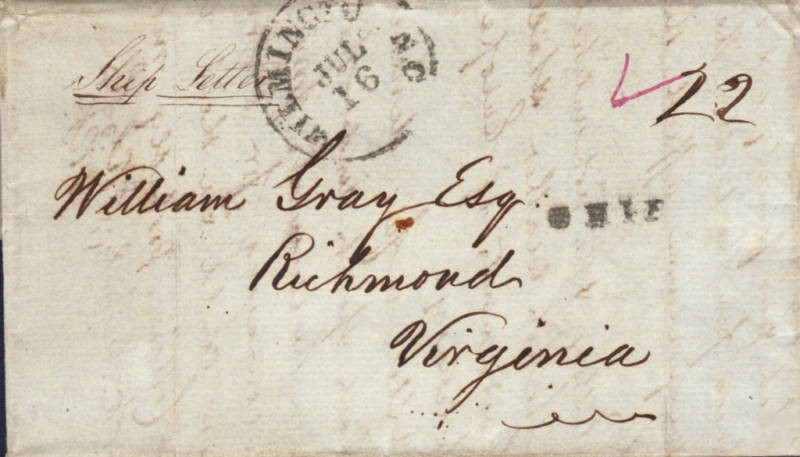 Ship Letter
WILMINGTON N.C
JUL
16
22
William Gray Esq.
SHIP
Richmond
Virginia